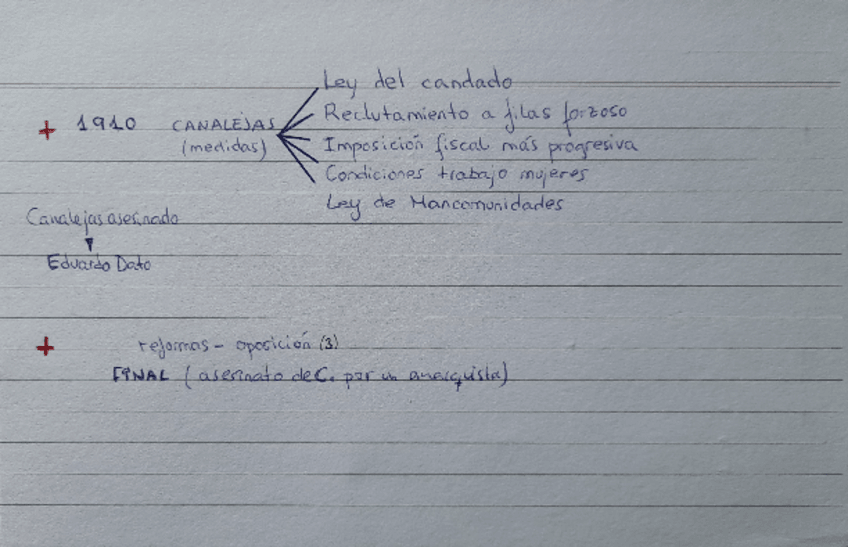 Ley del candado
+ 1910 CANALEJAS Reclutamiento a filas forzoso
(medidas) Imposición fiscal más progresiva
Condiciones trabajo mujeres
Ley de Mancomunidades
Canalejas asesinado
Eduardo Dato
+ reformas - oposición (3)
FINAL (asesinato de C. por un anarquista)